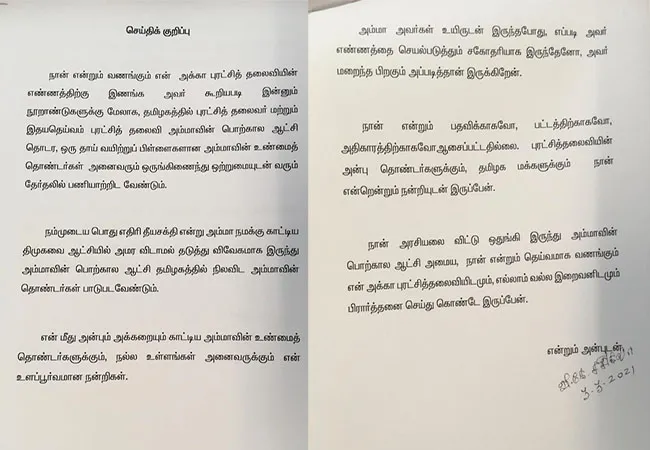 செய்திக் குறிப்பு
நான் என்றும் வணங்கும் என் அக்கா புரட்சித் தலைவியின்
எண்ணத்திற்கு இணங்க அவர் கூறியபடி இன்னும்
நூறாண்டுகளுக்கு மேலாக, தமிழகத்தில் புரட்சித் தலைவர் மற்றும்
இதயதெய்வம் புரட்சித் தலைவி அம்மாவின் பொற்கால ஆட்சி
தொடர, ஒரு தாய் வயிற்றுப் பிள்ளைகளான அம்மாவின் உண்மைத்
தொண்டர்கள் அனைவரும் ஒருங்கிணைந்து ஒற்றுமையுடன் வரும்
தேர்தலில் பணியாற்றிட வேண்டும்.
நம்முடைய பொது எதிரி தீயசக்தி என்று அம்மா நமக்கு காட்டிய
திமுகவை ஆட்சியில் அமர விடாமல் தடுத்து விவேகமாக இருந்து
அம்மாவின் பொற்கால ஆட்சி தமிழகத்தில் நிலவிட அம்மாவின்
தொண்டர்கள் பாடுபடவேண்டும்.
என் மீது அன்பும் அக்கறையும் காட்டிய அம்மாவின் உண்மைத்
தொண்டர்களுக்கும், நல்ல உள்ளங்கள் அனைவருக்கும் என்
உளப்பூர்வமான நன்றிகள்.
அம்மா அவர்கள் உயிருடன் இருந்தபோது, எப்படி அவர்
எண்ணத்தை செயல்படுத்தும் சகோதரியாக இருந்தேனோ, அவர்
மறைந்த பிறகும் அப்படித்தான் இருக்கிறேன்.
நான் என்றும் பதவிக்காகவோ, பட்டத்திற்காகவோ,
அதிகாரத்திற்காகவோ ஆசைப்பட்டதில்லை. புரட்சித்தலைவியின்
அன்பு தொண்டர்களுக்கும், தமிழக மக்களுக்கும் நான்
என்றென்றும் நன்றியுடன் இருப்பேன்.
நான் அரசியலை விட்டு ஒதுங்கி இருந்து அம்மாவின்
பொற்கால ஆட்சி அமைய, நான் என்றும் தெய்வமாக வணங்கும்
என் அக்கா புரட்சித்தலைவியிடமும், எல்லாம் வல்ல இறைவனிடமும்
பிரார்த்தனை செய்து கொண்டே இருப்பேன்.
என்றும் அன்புடன்,
3.3.2021